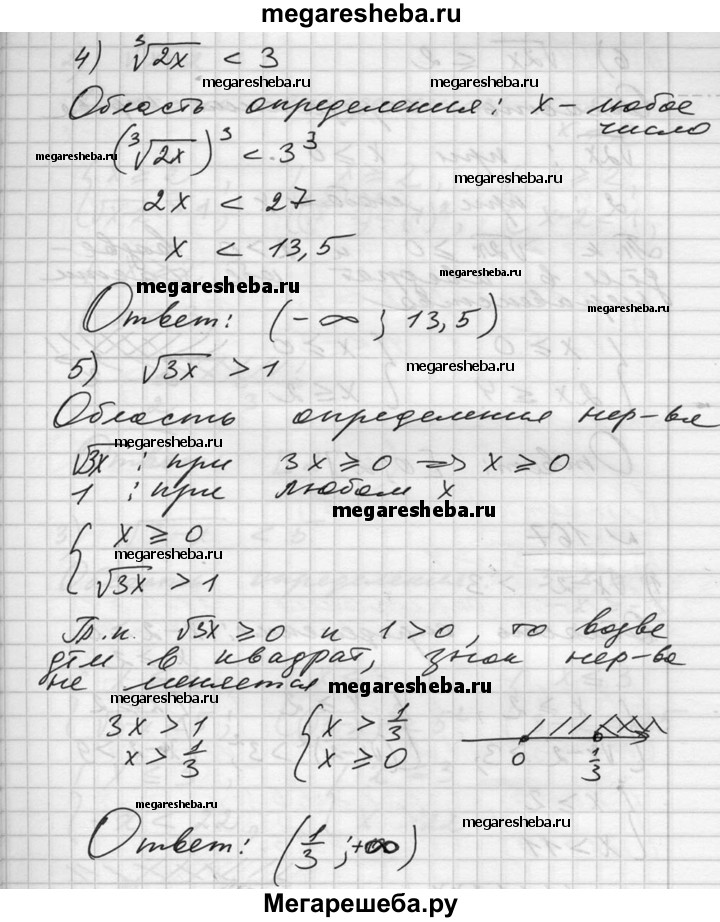 megaresheba.ru
4) ∛2x < 3
megaresheba.ru megaresheba.ru
Область определения: x – любое
число
megaresheba.ru (∛2x)³ < 3³
megaresheba.ru
2x < 27
x < 13,5
megaresheba.ru megaresheba.ru
Ответ: (-∞; 13,5)
megaresheba.ru
5) √3x > 1
megaresheba.ru
Область определения нер-ва
megaresheba.ru
√3x : при 3x ≥ 0 => x ≥ 0
1 : при любом x
megaresheba.ru
{ x ≥ 0
megaresheba.ru
√3x > 1
Т.к. √3x ≥ 0 и 1 > 0, то возве
дем в квадрат, знак нер-ва
не меняется megaresheba.ru
megaresheba.ru
3x > 1 { x > 1/3
x > 1/3 x ≥ 0 0 1/3
megaresheba.ru
megaresheba.ru
Ответ: (1/3; +∞)
Мегарешеба.ру